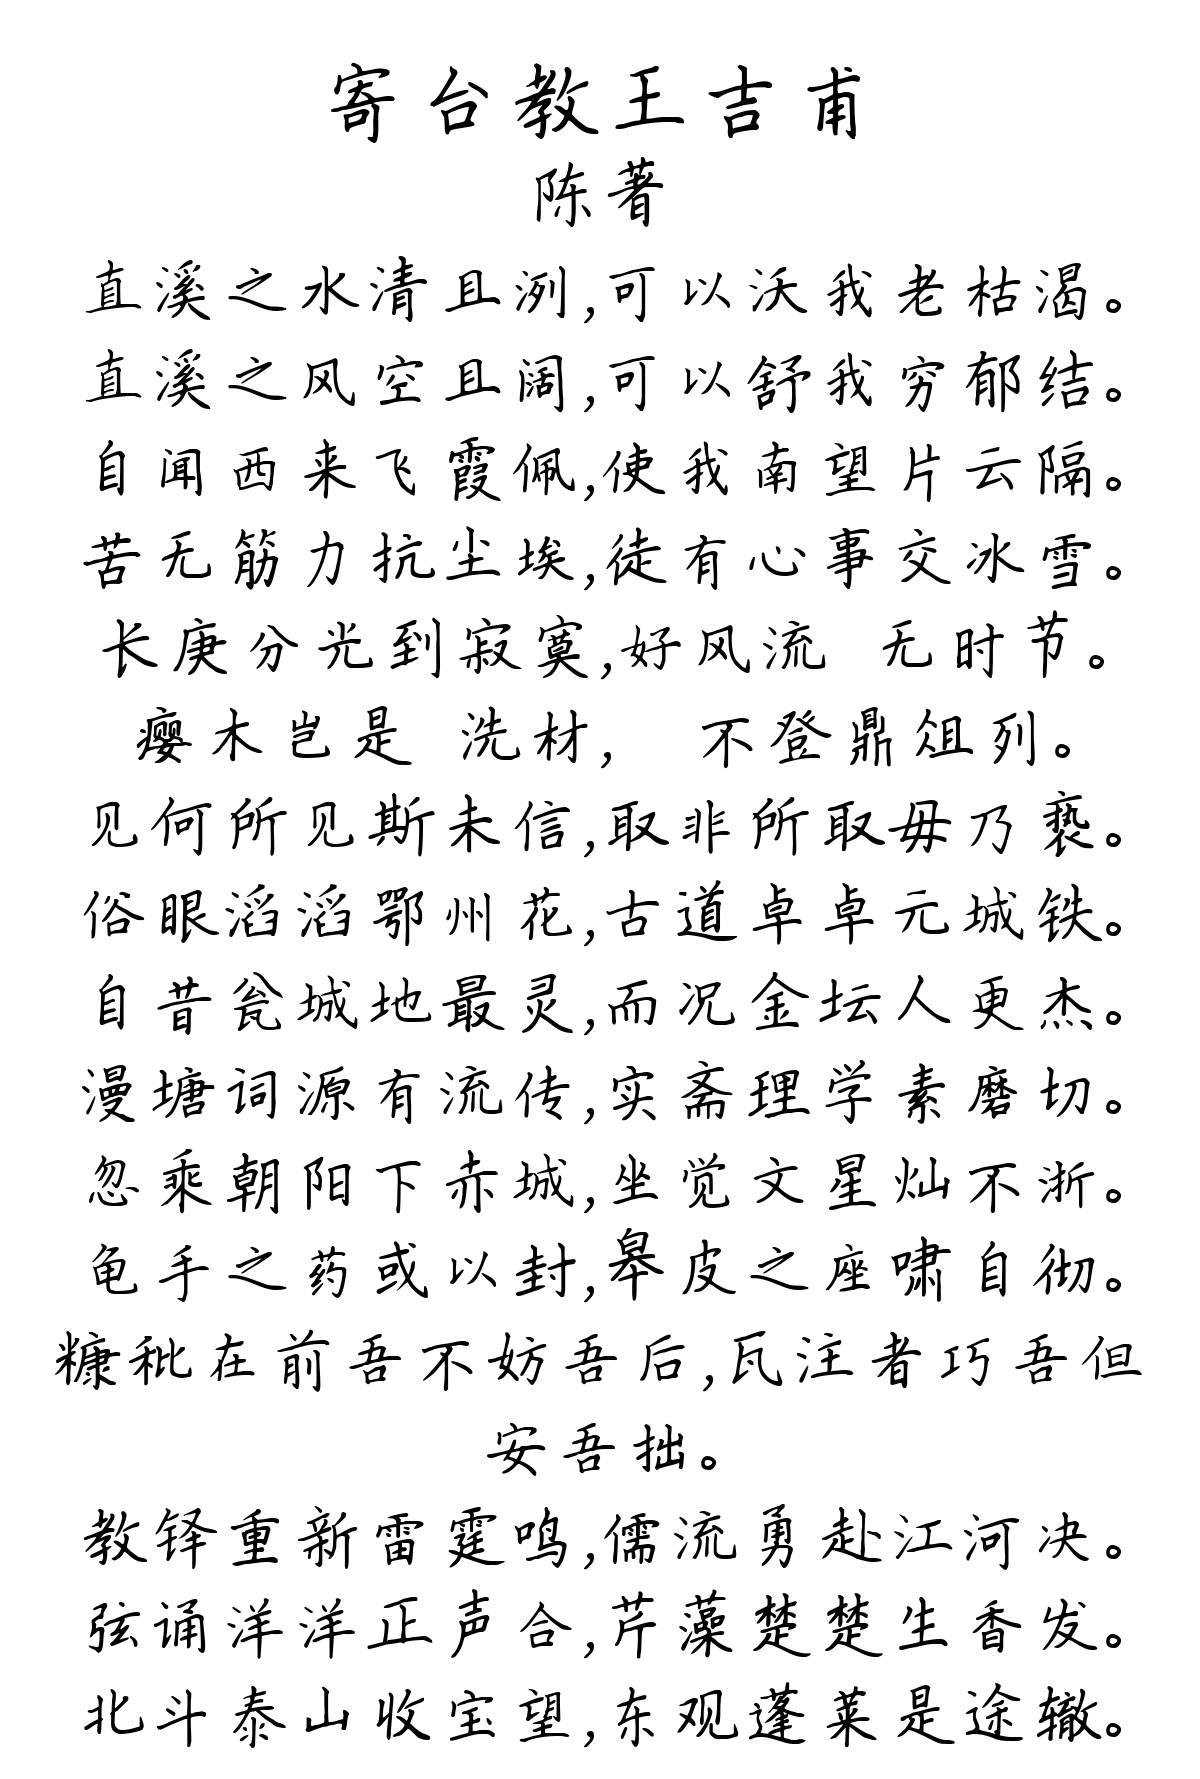 寄台教王吉甫
陈著
直溪之水清且洌,可以沃我老枯渴。
直溪之风空且阔,可以舒我穷郁结。
自闻西来飞霞佩,使我南望片云隔。
苦无筋力抗尘埃,徒有心事交冰雪。
长庚分光到寂寞,好风流 无时节。
瘿木岂是 洗材, 不登鼎俎列。
见何所见斯未信,取非所取毋乃亵。
俗眼滔滔鄂州花,古道卓卓元城铁。
自昔瓮城地最灵,而况金坛人更杰。
漫塘词源有流传,实斋理学素磨切。
忽乘朝阳下赤城,坐觉文星灿不浙。
龟手之药或以封,皋皮之座啸自彻。
糠秕在前吾不妨吾后,瓦注者巧吾但
安吾拙。
教铎重新雷霆鸣,儒流勇赴江河决。
弦诵洋洋正声合,芹藻楚楚生香发。
北斗泰山收宝望,东观蓬莱是途辙。